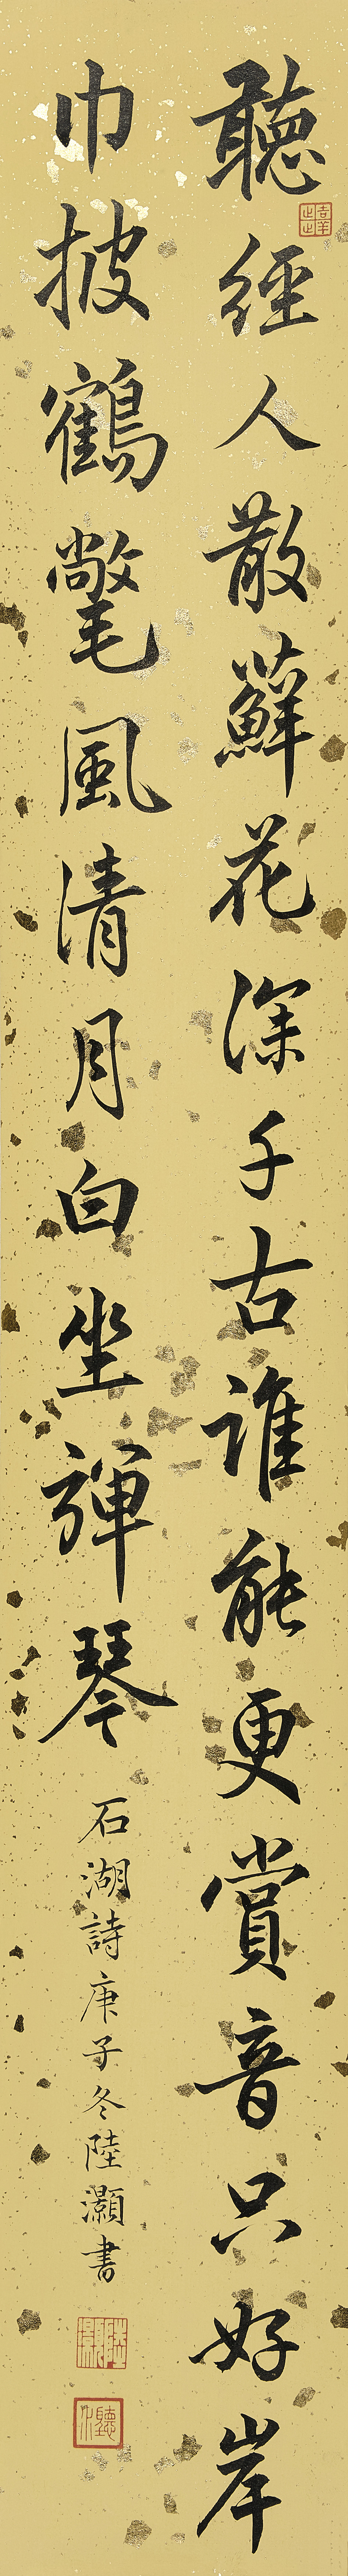 聽經人散蘚花深千古誰能更賞音只好岸
巾披鶴氅風清月白坐彈琴
石湖詩庚子冬陸灝書